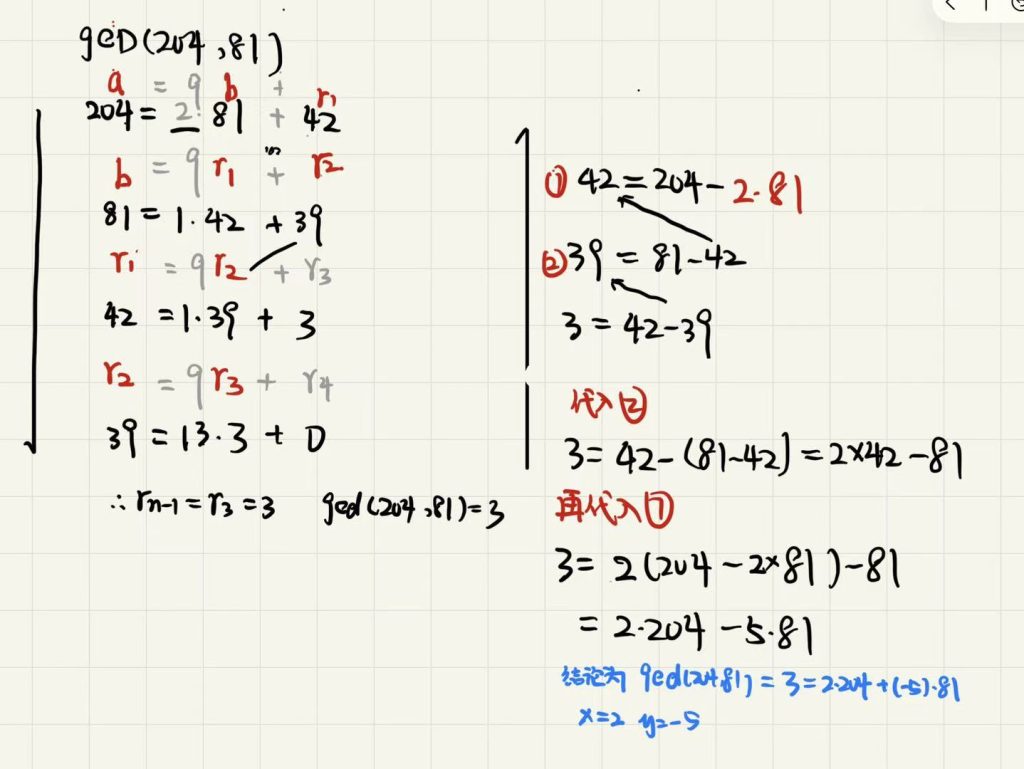 gcD(204,81)
a = q b + r1
204 = 2· 81 + 42
b = q r1 + r2
81 = 1·42 + 39
r1 = q r2 + r3
42 = 1·39 + 3
r2 = q r3 + r4
39 = 13·3 + 0
∴ rn-1 = r3 = 3 gcd(204,81)=3
① 42 = 204 - 2·81
② 39 = 81-42
3 = 42-39
代入②
3 = 42-(81-42) = 2×42 - 81
再代入①
3 = 2(204 - 2×81) - 81
= 2·204 - 5·81
结论为 gcd(204,81) = 3 = 2·204 + (-5)·81
x=2 y=-5